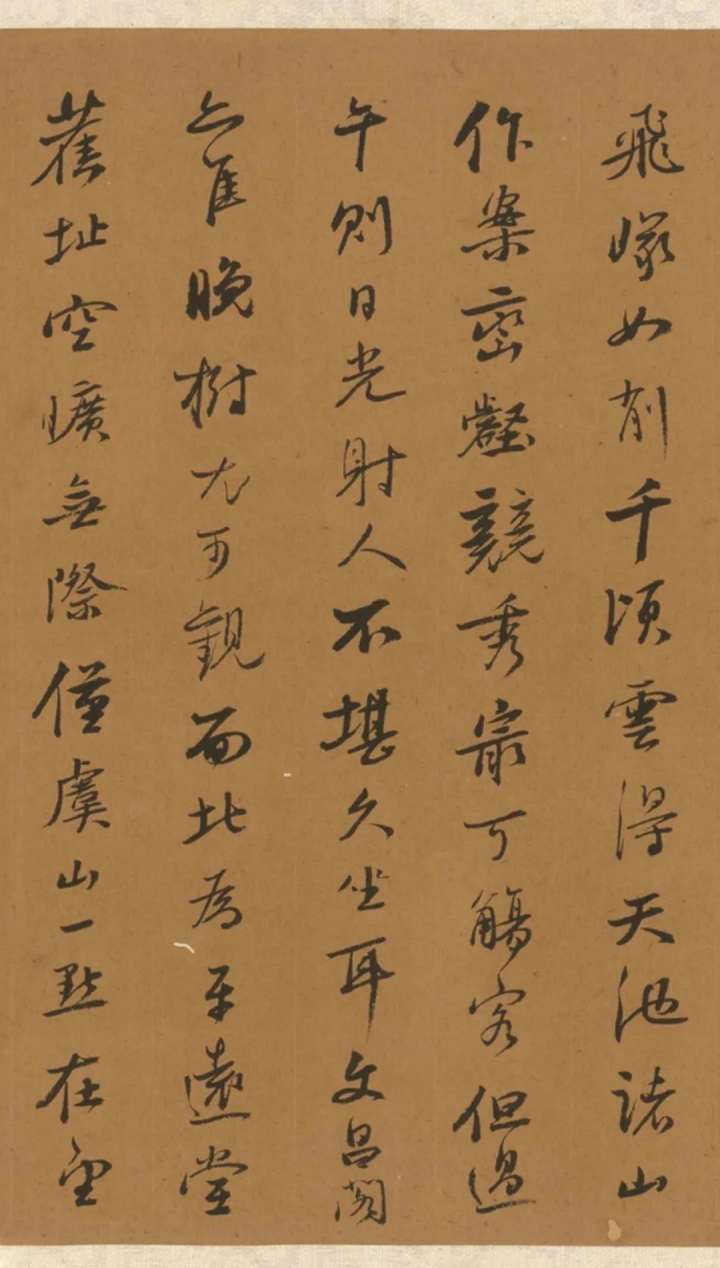 飛巖如削千頃雲得天池諸山
作案巒壑競秀最可觴客但過
午則日光射人不堪久坐耳文昌閣
亦佳晚樹尤可觀面北為平遠堂
舊址空曠無際僅虞山一點在望